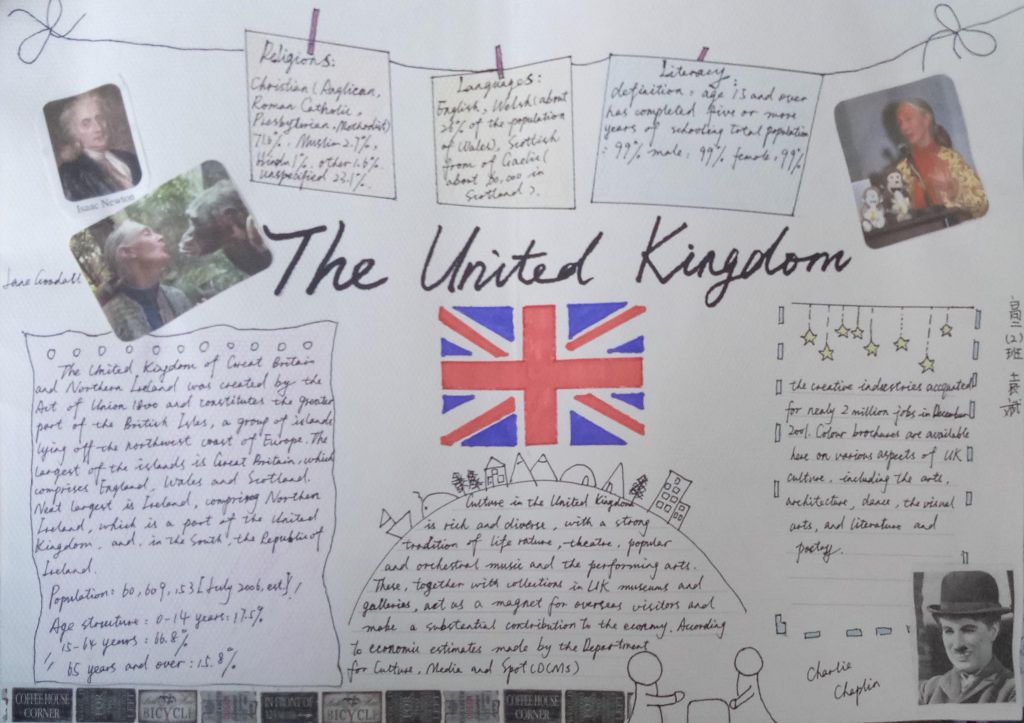 Religions:
Christian (Anglican,
Roman Catholic,
Presbyterian, Methodist)
71.6%. Muslim 2.7%,
Hindu 1%, other 1.6%.
unspecified 23.1%.
Languages:
English, Welsh (about
26% of the population
of Wales), Scottish
from of Gaelic (
about 60,000 in
Scotland).
Literacy:
definition: age 15 and over
has completed five or more
years of schooling total population
: 99% male: 99% female: 99%
Isaac Newton
Jane Goodall
The United Kingdom
高二(2)班
The United Kingdom of Great Britain
and Northern Ireland was created by the
Act of Union 1800 and constitutes the greater
part of the British Isles, a group of islands
lying off the northwest coast of Europe. The
largest of the islands is Great Britain, which
comprises England, Wales and Scotland.
Next largest is Ireland, comprising Northern
Ireland, which is a part of the United
Kingdom, and, in the South, the Republic of
Ireland.
Population: 60,609,153 [July 2006, est.]
Age structure: 0-14 years: 17.5%
15-64 years: 66.8%
65 years and over: 15.8%
Culture in the United Kingdom
is rich and diverse, with a strong
tradition of life rature, theatre, popular
and orchestral music and the performing arts.
These, together with collections in UK museums and
galleries, act us a magnet for overseas visitors and
make a substantial contribution to the economy. According
to economic estimates made by the Department
for Culture, Media and Spot (DCMS)
the creative industries accounted
for nearly 2 million jobs in December
2001. Colour brochures are available
here on various aspects of UK
culture, including the arts,
architecture, dance, the visual
arts, and literature and
poetry.
Charlie
Chaplin
COFFEE HOUSE
CORNER
BICYCLE
IN FRONT OF
BICYCLE
COFFEE HOUSE
CORNER